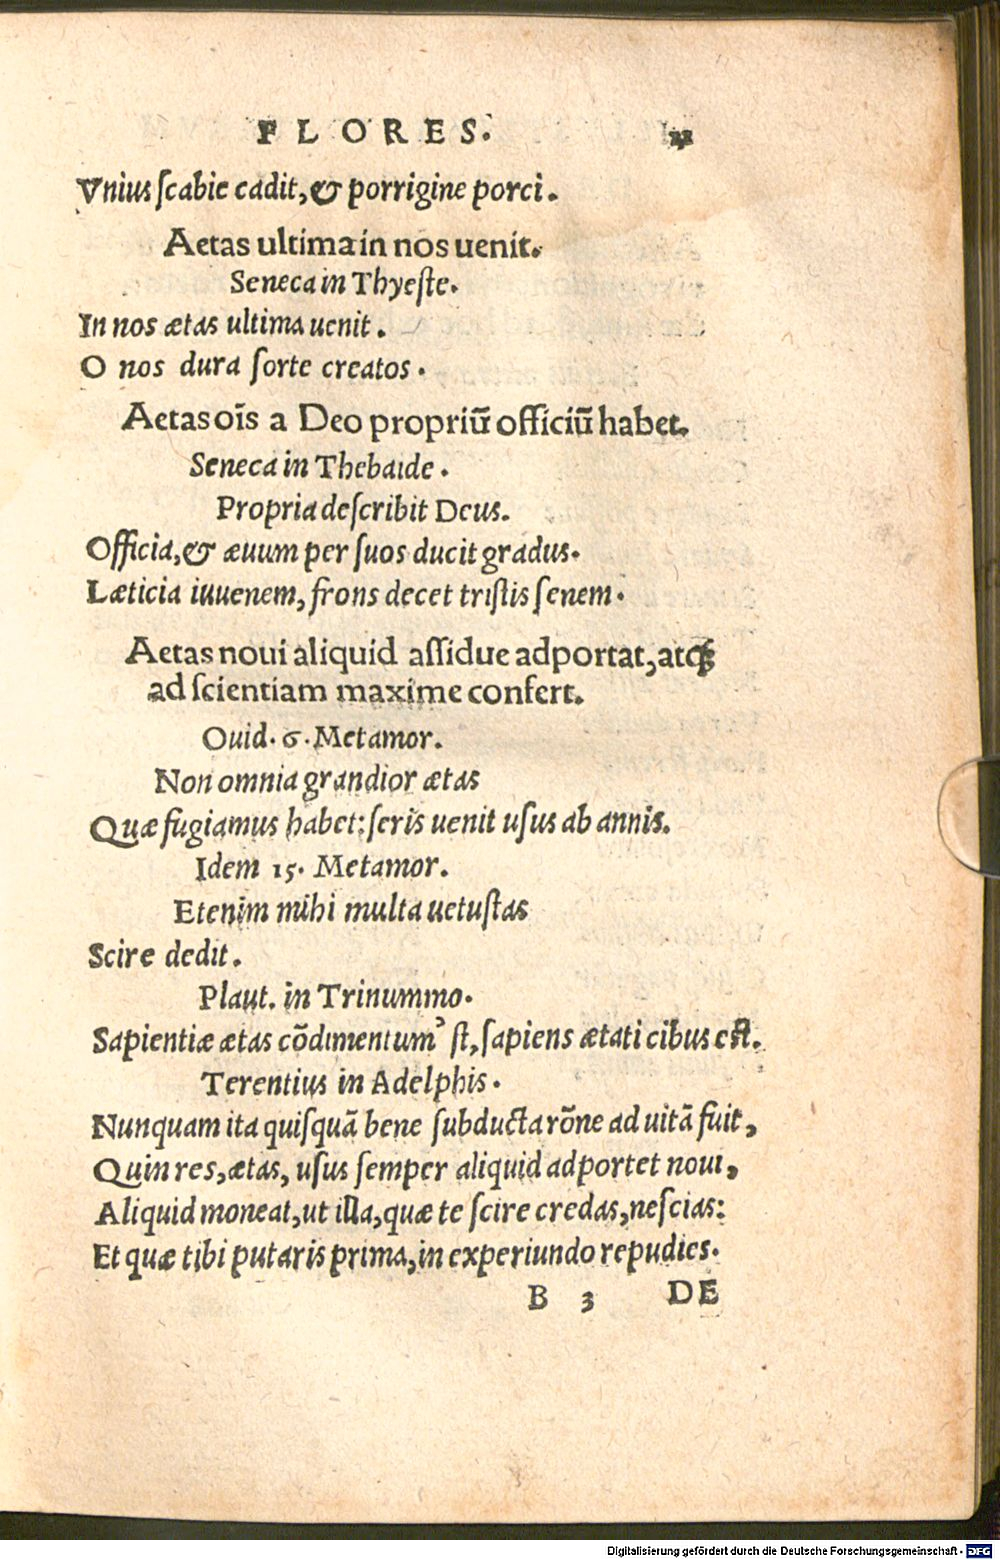 FLORES.
Vnius scabie cadit, & porrigine porci.
Aetas ultima in nos uenit.
Seneca in Thyeſte.
In nos ætas ultima uenit.
O nos dura ſorte creatos.
Aetas oĩs a Deo propriũ officiũ habet.
Seneca in Thebaide.
Propria deſcribit Deus.
Officia, & æuum per ſuos ducit gradus.
Læticia iuuenem, frons decet triſtis ſenem.
Aetas noui aliquid aſſidue adportat, atq;
ad ſcientiam maxime confert.
Ouid. 6. Metamor.
Non omnia grandior ætas
Quæ fugiamus habet: ſeris uenit uſus ab annis.
Idem 15. Metamor.
Etenim mihi multa uetuſtas
Scire dedit.
Plaut. in Trinummo.
Sapientiæ ætas cõdimentum' ſt, ſapiens ætati cibus eſt.
Terentius in Adelphis.
Nunquam ita quiſquã bene ſubducta rõne ad uitã fuit,
Quin res, ætas, uſus ſemper aliquid adportet noui,
Aliquid moneat, ut illa, quæ te ſcire credas, neſcias:
Et quæ tibi putaris prima, in experiundo repudies.
B 3 DE
Digitalisierung gefördert durch die Deutsche Forschungsgemeinschaft - DFG